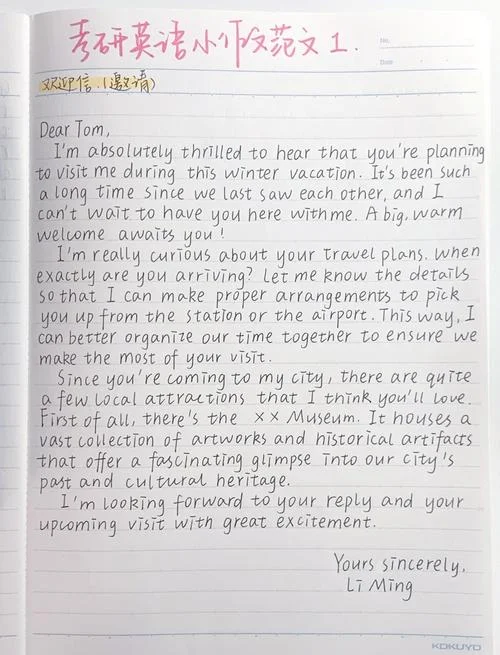 考研英语小作文范文1.
No.
Date
欢迎信.(邀请)
Dear Tom,
I'm absolutely thrilled to hear that you're planning
to visit me during this winter vacation. It's been such
a long time since we last saw each other, and I
can't wait to have you here with me. A big, warm
welcome awaits you!
I'm really curious about your travel plans. when
exactly are you arriving? Let me know the details
so that I can make proper arrangements to pick
you up from the station or the airport. This way, I
can better organize our time together to ensure we
make the most of your visit.
Since you're coming to my city, there are quite
a few local attractions that I think you'll love.
First of all, there's the ×× Museum. It houses a
vast collection of artworks and historical artifacts
that offer a fascinating glimpse into our city's
past and cultural heritage.
I'm looking forward to your reply and your
upcoming visit with great excitement.
Yours sincerely,
Li Ming
KOKUYO